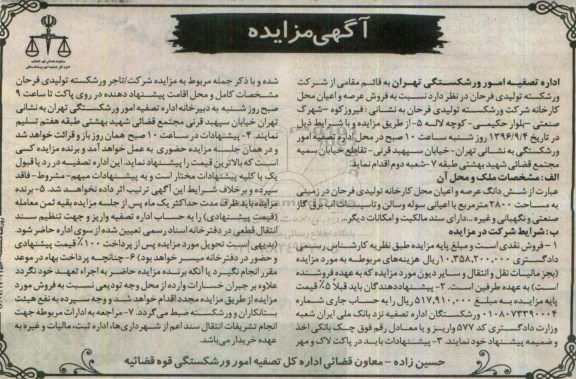 آگهی مزایده
اداره تصفیه امور ورشکستگی تهران به قائم مقامی از شرکت
ورشکسته تولیدی فرحان در نظر دارد نسبت به فروش عرصه و اعیان محل
کارخانه شرکت ورشکسته تولیدی فرحان به نشانی: فیروزکوه – شهرک
صنعتی – بلوار حکیمی- کوچه لاله ۵- از طریق مزایده و با شرایط ذیل
در تاریخ ۱۳۹۶/۹/۴ روز شنبه ساعت ۱۰ صبح در محل اداره تصفیه امور
ورشکستگی به نشانی تهران- خیابان سپهبد قرنی- تقاطع خیابان سمیه
مجتمع قضائی شهید بهشتی طبقه ۷- شعبه دوم اقدام نماید.
الف: مشخصات ملک و محل آن
عبارت از شش دانگ عرصه و اعیان محل کارخانه تولیدی فرحان در زمینی
به مساحت ۲۸۰۰ مترمربع با اعیانی سوله و سالن و تاسیسات آب برق گاز
صنعتی و نگهبانی و غیره...دارای سند مالکیت و امکانات دیگر...
ب: شرایط شرکت در مزایده
۱- فروش نقدی است و مبلغ پایه مزایده طبق نظریه کارشناس رسمی
دادگستری ۱۰,۳۵۸,۲۰۰,۰۰۰ ریال هزینه‌های مربوطه به مورد مزایده
(بجز مالیات نقل و انتقال و سایر دیون مورد مزایده که به عهده فروشنده
است) به عهده طرفین است. ۲- پیشنهاددهندگان باید قبلاً ۵٪ قیمت
پایه مزایده به مبلغ ۵۱۷,۹۱۰,۰۰۰ ریال را به حساب جاری شماره
۰۱۰۸۰۷۳۳۹۰۰۰۴ ورشکستگان اداره تصفیه نزد بانک ملی ایران شعبه
وزارت دادگستری کد ۵۷۷ واریز و یا معادل رقم فوق چک بانکی اخذ
و ضمیمه پیشنهاد خود نمایند. ۳- پیشنهادات باید در پاکت لاک و مهر
شده و با ذکر جمله مربوط به مزایده شرکت/تاجر ورشکسته تولیدی فرحان
مشخصات کامل و محل اقامت پیشنهاد دهنده در روی پاکت تا ساعت ۹
صبح روز شنبه به دبیرخانه اداره تصفیه امور ورشکستگی تهران به نشانی
تهران خیابان سپهبد قرنی مجتمع قضائی شهید بهشتی طبقه هفتم تسلیم
نمایند. ۴- پیشنهادات در ساعت ۱۰ صبح همان روز باز و قرائت خواهد شد
و در همان جلسه مزایده حضوری به عمل خواهد آمد و برنده مزایده کسی
است که بالاترین قیمت را پیشنهاد نماید، این اداره تصفیه در رد یا قبول
یک یا کلیه پیشنهادات مختار است و به پیشنهادات مبهم- مشروط- فاقد
سپرده و برخلاف شرایط این آگهی ترتیب اثر داده نخواهد شد. ۵- برنده
مزایده باید ظرف مدت حداکثر یک ماه پس از جلسه مزایده بقیه ثمن معامله
(قیمت پیشنهادی) را به حساب اداره تصفیه واریز و جهت تنظیم سند
انتقال قطعی در دفترخانه اسناد رسمی تعیین شده از سوی اداره حاضر شود.
(بدیهی است تحویل مورد مزایده پس از پرداخت ۱۰۰٪ قیمت پیشنهادی
و حضور در دفترخانه میسر خواهد بود) ۶- چنانچه پرداخت بهاء در موعد
مقرر انجام نگیرد یا آنکه برنده مزایده حاضر به اجراء تعهد خود نگردد
علاوه بر جبران خسارات وارده از محل وجه تودیعی نسبت به فروش مورد
مزایده از طریق مزایده مجدد اقدام خواهد شد و وجه سپرده به نفع هیئت
بستانکاران و ورشکسته ضبط می‌گردد. ۷- مراجعه به ادارات مربوطه جهت
انجام تشریفات انتقال سند اعم از شهرداری‌ها، اداره ثبت، مالیات و غیره به
عهده خریدار می‌باشد.
حسین زاده – معاون قضائی اداره کل تصفیه امور ورشکستگی قوه قضائیه